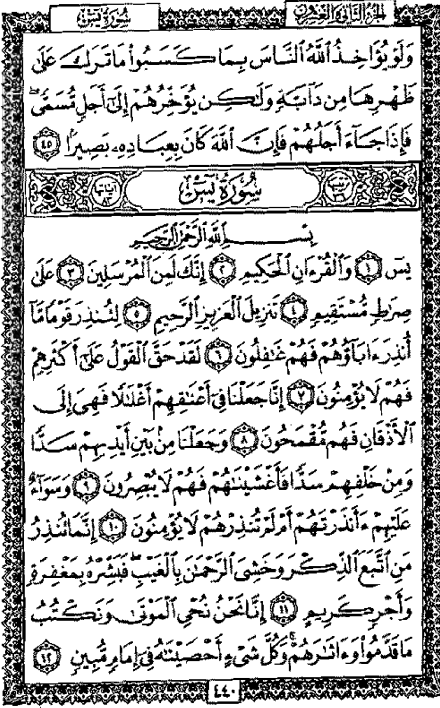 سُورَةُ يسٓ الجزء الثاني والعشرون
وَلَوْ يُؤَاخِذُ ٱللَّهُ ٱلنَّاسَ بِمَا كَسَبُوا۟ مَا تَرَكَ عَلَىٰ
ظَهْرِهَا مِن دَآبَّةٍ وَلَٰكِن يُؤَخِّرُهُمْ إِلَىٰٓ أَجَلٍ مُّسَمًّى ۖ
فَإِذَا جَآءَ أَجَلُهُمْ فَإِنَّ ٱللَّهَ كَانَ بِعِبَادِهِۦ بَصِيرًۢا ٤٥
سُورَةُ يسٓ
بِسْمِ ٱللَّهِ ٱلرَّحْمَٰنِ ٱلرَّحِيمِ
يسٓ ١ وَٱلْقُرْءَانِ ٱلْحَكِيمِ ٢ إِنَّكَ لَمِنَ ٱلْمُرْسَلِينَ ٣ عَلَىٰ
صِرَٰطٍ مُّسْتَقِيمٍ ٤ تَنزِيلَ ٱلْعَزِيزِ ٱلرَّحِيمِ ٥ لِتُنذِرَ قَوْمًا مَّآ
أُنذِرَ ءَابَآؤُهُمْ فَهُمْ غَٰفِلُونَ ٦ لَقَدْ حَقَّ ٱلْقَوْلُ عَلَىٰٓ أَكْثَرِهِمْ
فَهُمْ لَا يُؤْمِنُونَ ٧ إِنَّا جَعَلْنَا فِىٓ أَعْنَٰقِهِمْ أَغْلَٰلًا فَهِىَ إِلَى
ٱلْأَذْقَانِ فَهُم مُّقْمَحُونَ ٨ وَجَعَلْنَا مِنۢ بَيْنِ أَيْدِيهِمْ سَدًّا
وَمِنْ خَلْفِهِمْ سَدًّا فَأَغْشَيْنَٰهُمْ فَهُمْ لَا يُبْصِرُونَ ٩ وَسَوَآءٌ
عَلَيْهِمْ ءَأَنذَرْتَهُمْ أَمْ لَمْ تُنذِرْهُمْ لَا يُؤْمِنُونَ ١٠ إِنَّمَا تُنذِرُ
مَنِ ٱتَّبَعَ ٱلذِّكْرَ وَخَشِىَ ٱلرَّحْمَٰنَ بِٱلْغَيْبِ ۖ فَبَشِّرْهُ بِمَغْفِرَةٍ
وَأَجْرٍ كَرِيمٍ ١١ إِنَّا نَحْنُ نُحْىِ ٱلْمَوْتَىٰ وَنَكْتُبُ
مَا قَدَّمُوا۟ وَءَاثَٰرَهُمْ ۚ وَكُلَّ شَىْءٍ أَحْصَيْنَٰهُ فِىٓ إِمَامٍ مُّبِينٍ ١٢
٤٤٠